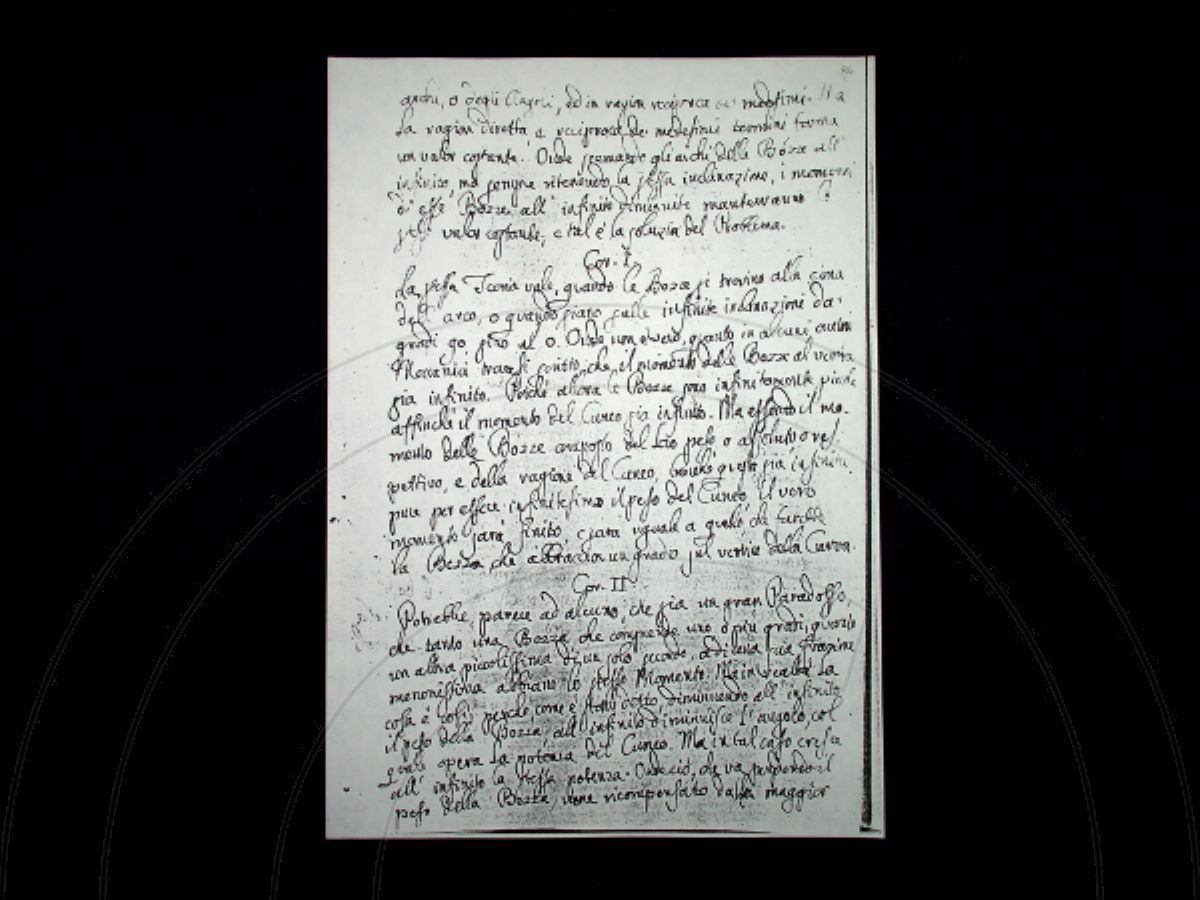 archi, o degli Angoli, ed in ragion reciproca de' medesimi. Ma
la ragion diretta e reciproca de' medesimi termini forma
un valor costante. Onde scemando gli archi delle Bozze all'
infinito, ma sempre ritenendo la stessa inclinazione, i momenti
d' esse Bozze all' infinito diminuite manterranno lo
stesso valor costante, e tal è la soluzion del Problema.
Cor. I.
La stessa Teoria vale, quando le Bozze si trovino alla cima
dell' arco, o quando siano sulle infinite inclinazioni da'
gradi 90 sino al 0. Onde non è vero, quanto in alcuni autori
Meccanici trovasi scritto, che il momento delle Bozze al vertice
sia infinito. Poiché allora le Bozze sono infinitamente piccole
affinché il momento del Cuneo sia infinito. Ma essendo il mo-
mento delle Bozze composto del loro peso o assoluto o res-
pettivo, e della ragione del Cuneo, benché questo sia infinito
pure per essere infinitesimo il peso del Cuneo il vero
momento sarà finito, e sarà uguale a quello che farebbe
la Bozza che abbraccia un grado sul vertice della Curva.
Cor. II
Potrebbe parere ad alcuno, che sia un gran Paradosso,
che tanto una Bozza che comprende uno o più gradi, quanto
un altra piccolissima di un solo secondo, o di una sua frazione
menomissima abbiano lo stesso Momento. Ma in realtà la
cosa è così, perché come è stato detto, diminuendo all' infinito
il peso della Bozza, all' infinito diminuisce l' angolo, col
quale opera la potenza del Cuneo. Ma in tal caso cresce
all' infinito la stessa potenza. Onde ciò, che va perdendo il
peso della Bozza, viene ricompensato dalla maggior